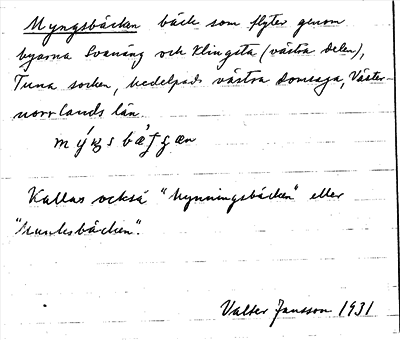 Myngsbäcken bäck som flyter genom
byarna Svanäng och Klingsta (västra delen),
Tuna socken, Medelpads västra domsaga, Väster-
norrlands län.
Kallas också "Mynningsbäcken" eller
"Munksbäcken".
Valter Jansson 1931